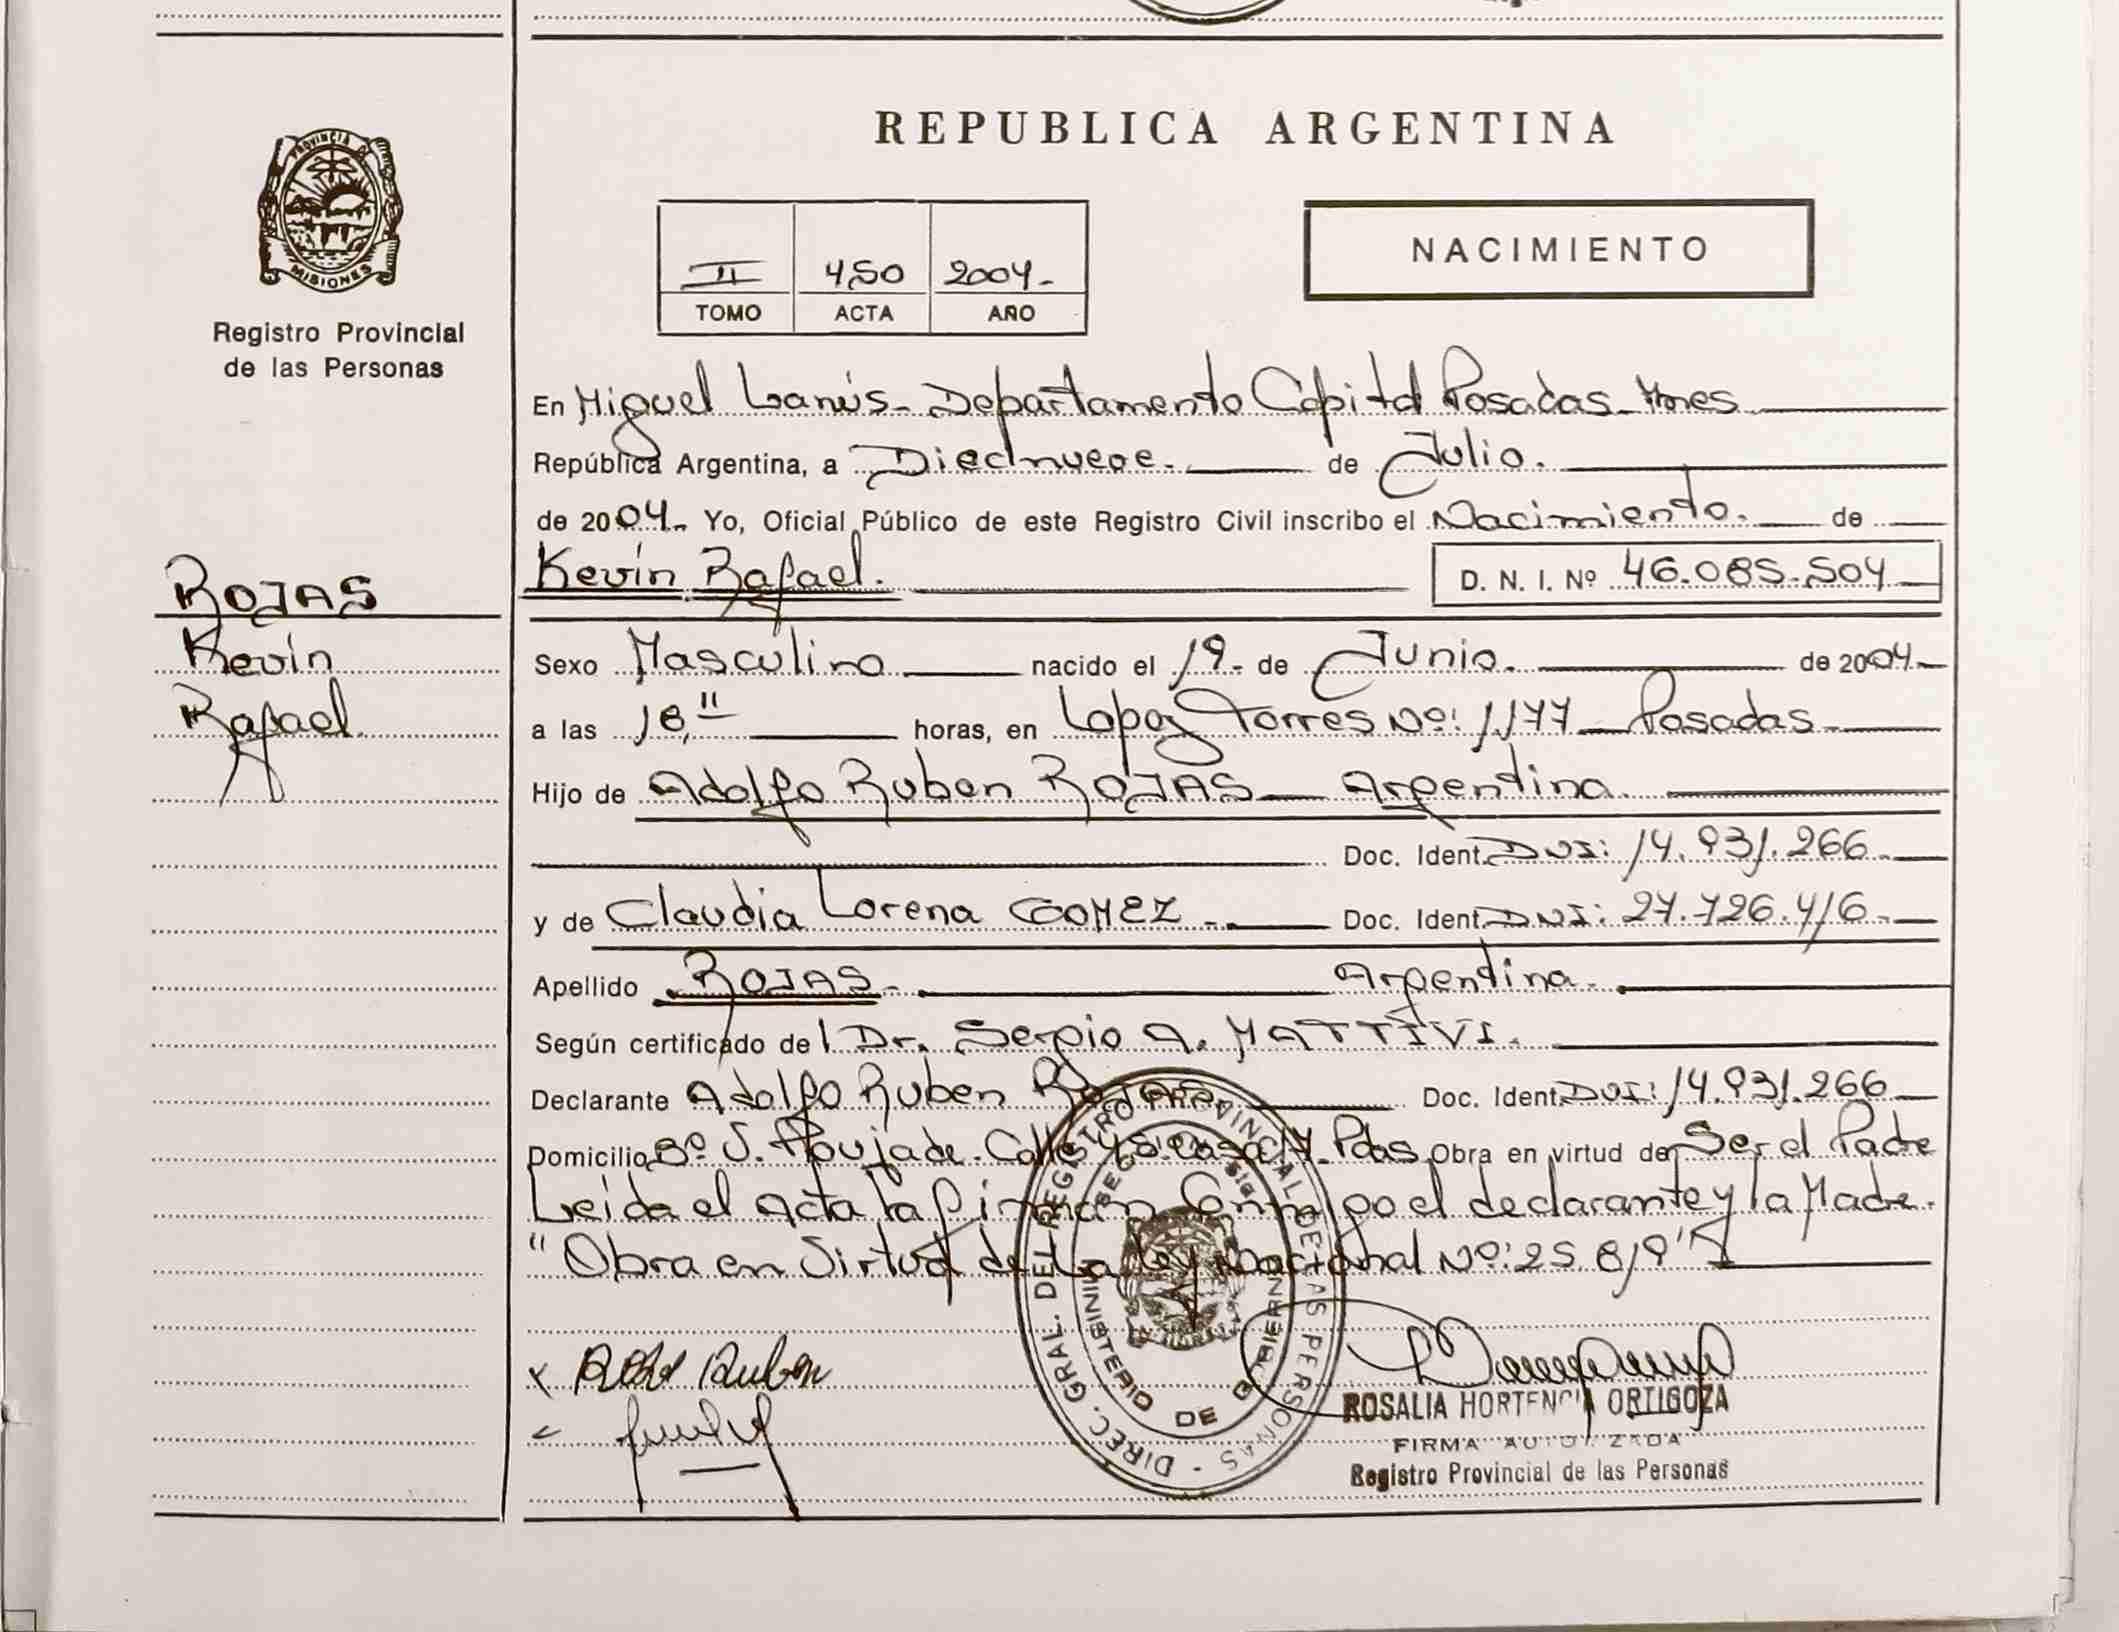 REPUBLICA ARGENTINA
PROVINCIA DE
MISIONES
Registro Provincial
de las Personas
II 450 2004.-
TOMO ACTA AÑO
NACIMIENTO
En Miguel Lanús - Departamento Capital Posadas Mnes
República Argentina, a Diecinueve. de Julio.
de 2004.- Yo, Oficial Público de este Registro Civil inscribo el Nacimiento. de
Kevin Rafael. D. N. I. Nº 46.085.504
ROJAS
Kevin
Rafael.
Sexo Masculino nacido el 19. de Junio. de 2004.-
a las 18,11 horas, en Lopez Torres Nº: 1.177 Posadas.
Hijo de Adolfo Ruben ROJAS Argentina.
Doc. Ident. DNI: 14.931.266
y de Claudia Lorena GOMEZ.- Doc. Ident. DNI: 27.726.416.-
Apellido ROJAS.- Argentina.
Según certificado del Dr. Sergio A. MATTIVI.
Declarante Adolfo Ruben ROJAS. Doc. Ident. DNI: 14.931.266
Domicilio Bº S. Calle casa Pdas. Obra en virtud de Ser el Padre
Leida el Acta la Firman Conmigo el declarante y la Madre.
"Obra en Virtud de La Ley Nacional Nº: 25.819"
DIREC. GRAL. DEL REGISTRO PROVINCIAL DE LAS PERSONAS
MINISTERIO DE GOBIERNO
Ruben
ROSALIA HORTENCIA ORTIGOZA
FIRMA AUTORIZADA
Registro Provincial de las Personas